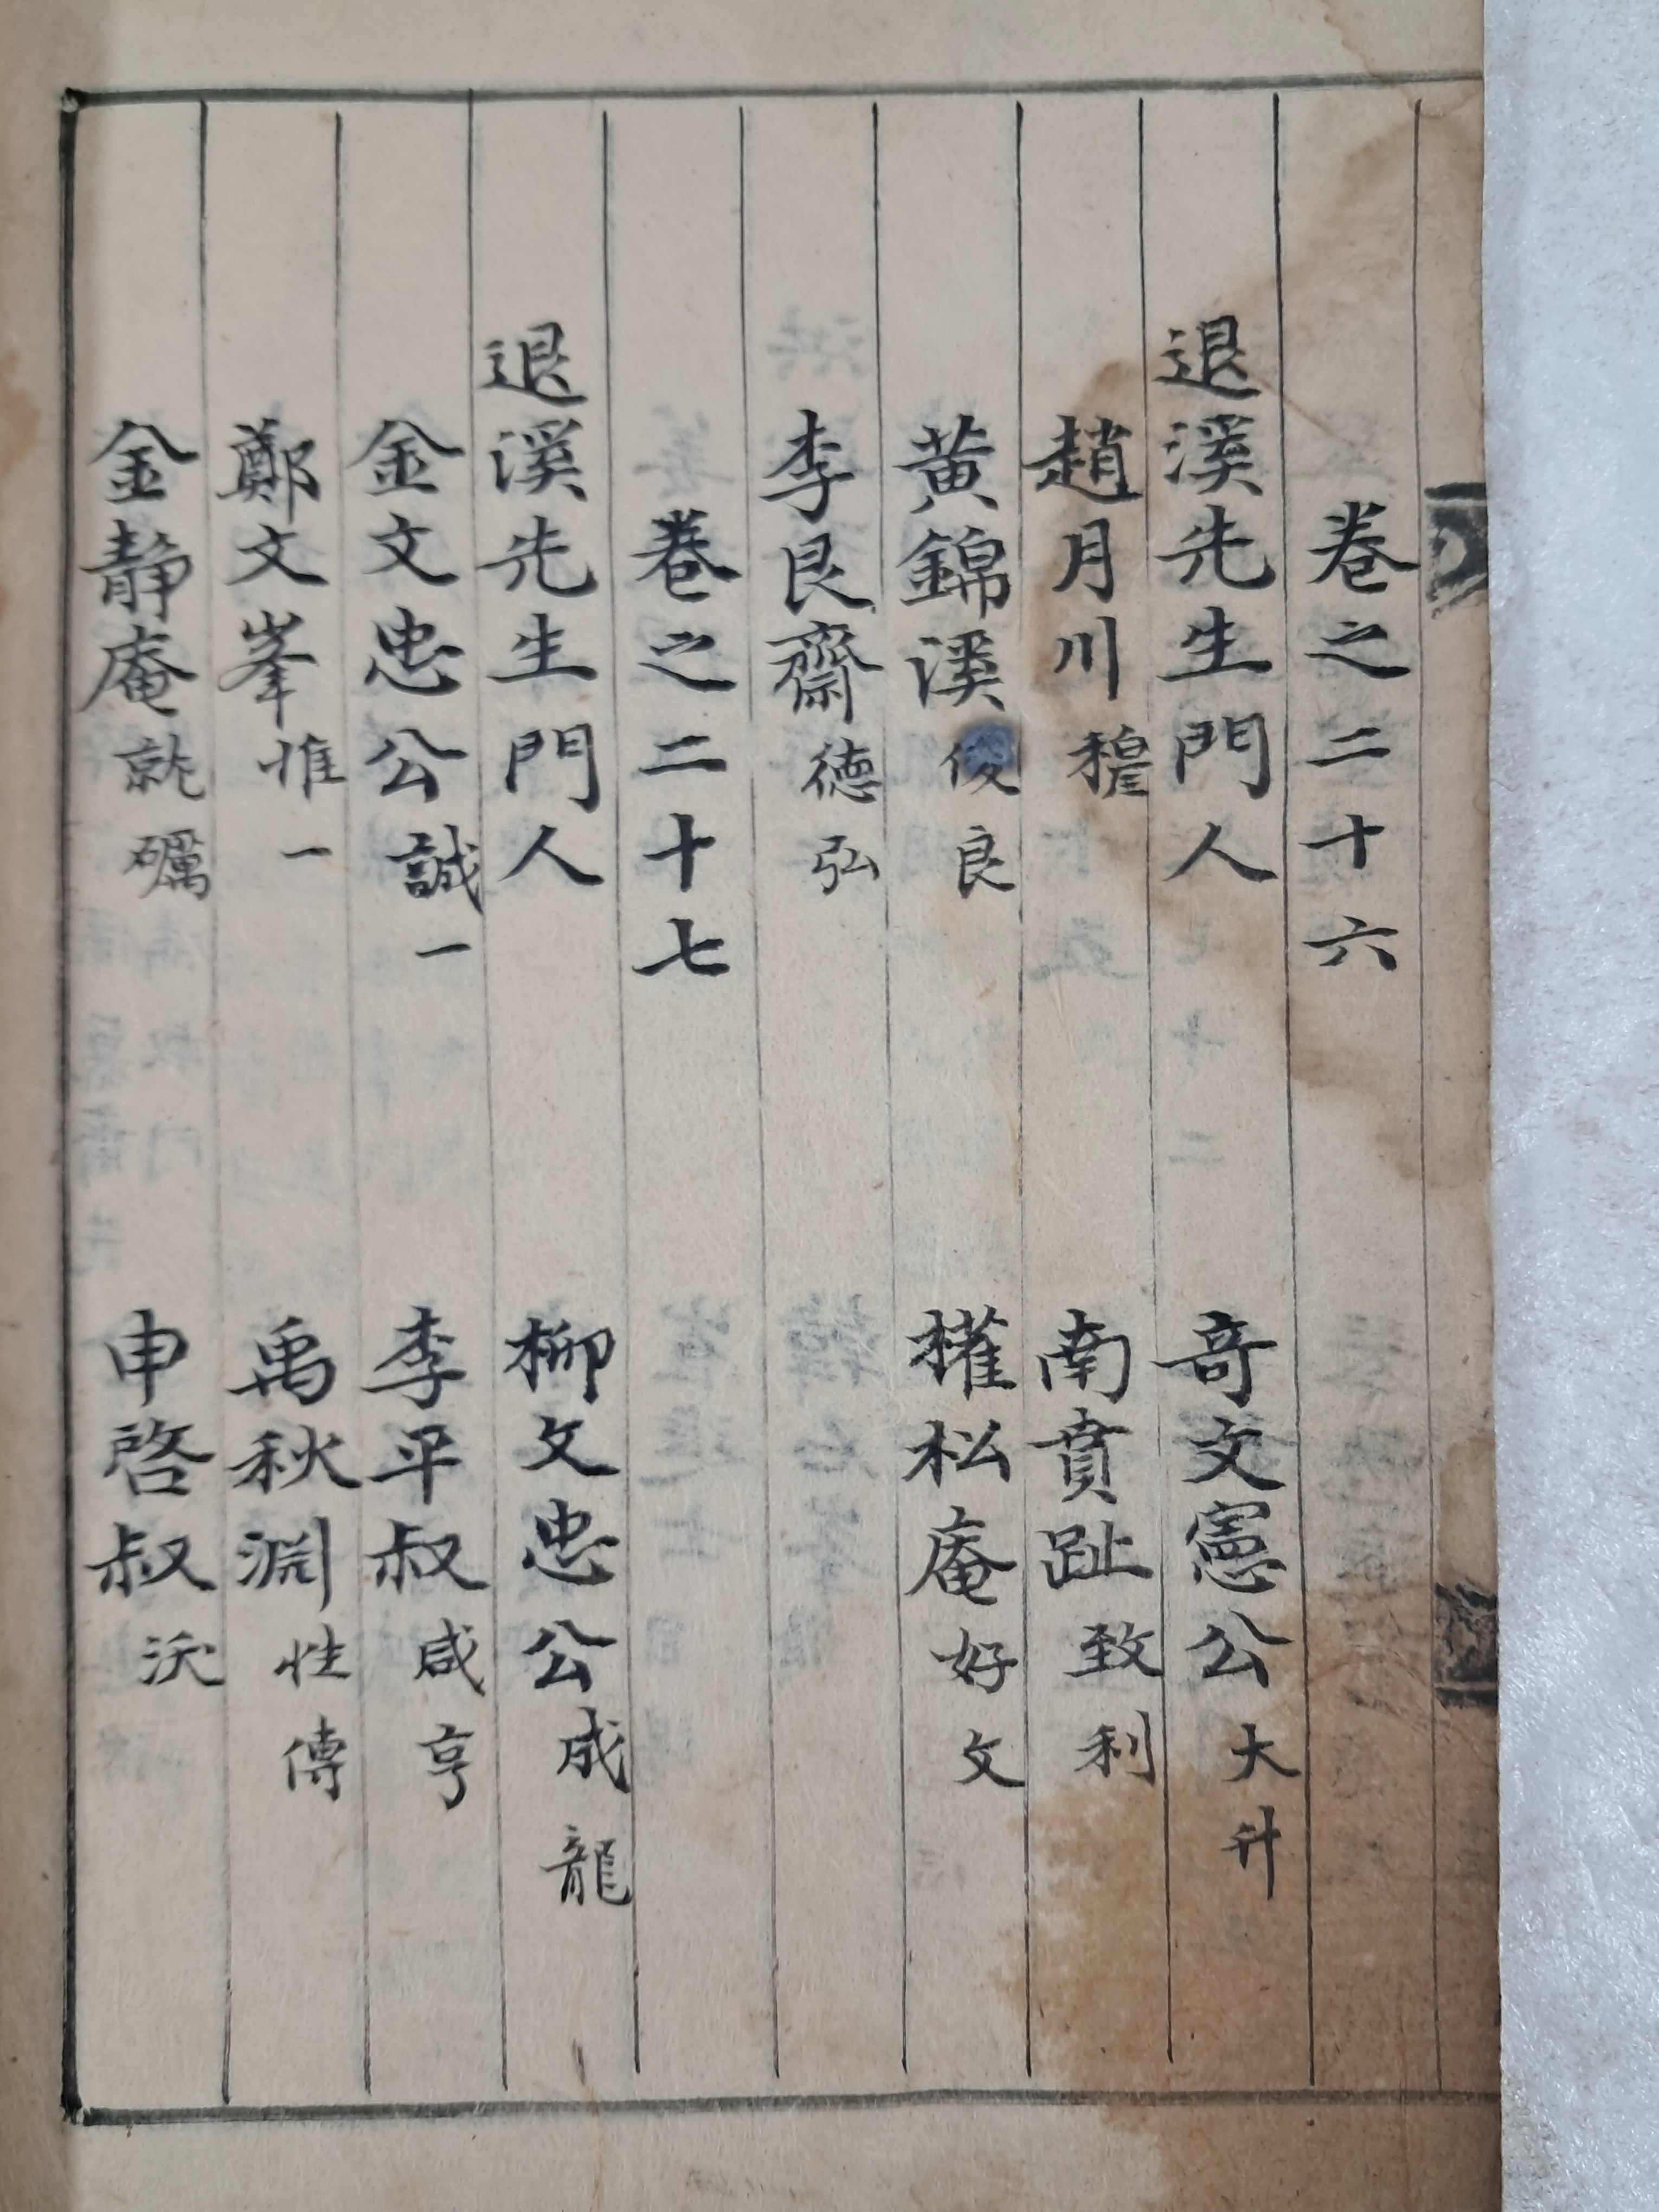 卷之二十六
退溪先生門人 奇文憲公 大升
趙月川 穆 南賁趾 致利
黃錦溪 俊良 權松庵 好文
李艮齋 德弘
卷之二十七
退溪先生門人 柳文忠公 成龍
金文忠公 誠一 李平叔 咸亨
鄭文峯 惟一 禹秋淵 性傳
金靜庵 就礪 申啓叔 沃